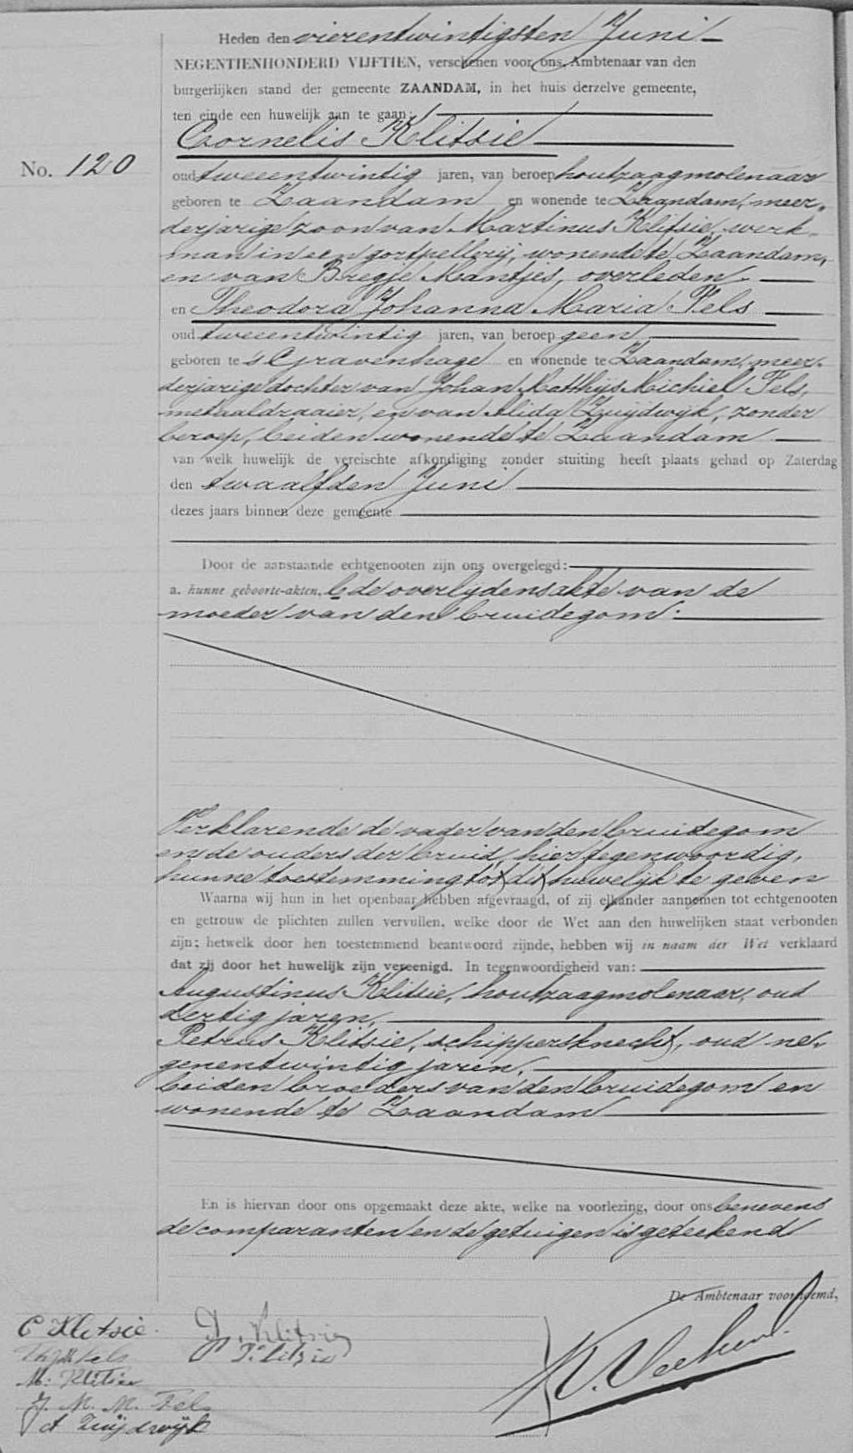 Heden den vierentwintigsten Juni
NEGENTIENHONDERD VIJFTIEN, verschenen voor ons Ambtenaar van den
burgerlijken stand der gemeente ZAANDAM, in het huis derzelve gemeente,
ten einde een huwelijk aan te gaan:
Cornelis Klitsie
No. 120
oud tweeentwintig jaren, van beroep houtzaagmolenaar
geboren te Zaandam en wonende te Zaandam, meer-
derjarige zoon van Martinus Klitsie, werk-
man in een gortpellerij, wonende te Zaandam,
en van Bregje Mantjes, overleden.
en Theodora Johanna Maria Pels
oud tweeentwintig jaren, van beroep geen,
geboren te 's Gravenhage en wonende te Zaandam, meer-
derjarige dochter van Johan Matthijs Michiel Pels,
metaaldraaier, en van Alida Zuijdwijk, zonder
beroep, beiden wonende te Zaandam
van welk huwelijk de vereischte afkondiging zonder stuiting heeft plaats gehad op Zaterdag
den twaalfden Juni
dezes jaars binnen deze gemeente
Door de aanstaande echtgenooten zijn ons overgelegd:
a. hunne geboorte-akten, b de overlijdensakte van de
moeder van den bruidegom.
Verklarende de vader van den bruidegom
en de ouders der bruid, hier tegenwoordig,
hunne toestemming tot dit huwelijk te geven
Waarna wij hun in het openbaar hebben afgevraagd, of zij elkander aannemen tot echtgenooten
en getrouw de plichten zullen vervullen, welke door de Wet aan den huwelijken staat verbonden
zijn; hetwelk door hen toestemmend beantwoord zijnde, hebben wij in naam der Wet verklaard
dat zij door het huwelijk zijn vereenigd. In tegenwoordigheid van:
Augustinus Klitsie, houtzaagmolenaar, oud
dertig jaren,
Petrus Klitsie, schippersknecht, oud ne-
genentwintig jaren,
beiden broeders van den bruidegom en
wonende te Zaandam
En is hiervan door ons opgemaakt deze akte, welke na voorlezing, door ons benevens
de comparanten en de getuigen is geteekend
De Ambtenaar voornoemd,
C Klitsie.
Klitsie
Pels
P. Klitsie
M. Klitsie
J. M. M. Pels
A Zuijdwijk